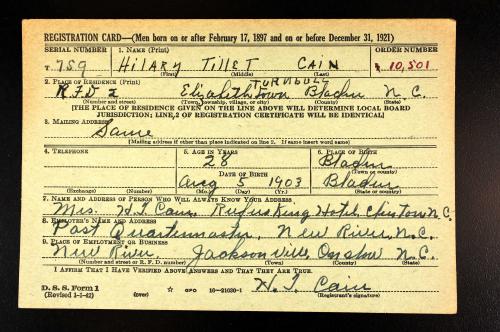 REGISTRATION CARD—(Men born on or after February 17, 1897 and on or before December 31, 1921)
SERIAL NUMBER 1. NAME (Print) ORDER NUMBER
T 759 HilARY TilleT CAIN T 10,501
(First) (Middle) (Last)
2. PLACE OF RESIDENCE (Print) TURNBULL
R.F.D 2 Elizabethtown Bladen N.C.
(Number and street) (Town, township, village, or city) (County) (State)
[THE PLACE OF RESIDENCE GIVEN ON THE LINE ABOVE WILL DETERMINE LOCAL BOARD
JURISDICTION; LINE 2 OF REGISTRATION CERTIFICATE WILL BE IDENTICAL]
3. MAILING ADDRESS
Same
[Mailing address if other than place indicated on line 2. If same insert word same]
4. TELEPHONE 5. AGE IN YEARS 6. PLACE OF BIRTH
28 Bladen
DATE OF BIRTH (Town or county)
Aug 5 1903 Bladen
(Exchange) (Number) (Mo.) (Day) (Yr.) (State or country)
7. NAME AND ADDRESS OF PERSON WHO WILL ALWAYS KNOW YOUR ADDRESS
Mrs. H.T. Cain, Rufus King Hotel, N.C.
8. EMPLOYER'S NAME AND ADDRESS
Post Quartermaster, New River, N.C.
9. PLACE OF EMPLOYMENT OR BUSINESS
New River, Jacksonville, Onslow N.C.
(Number and street or R. F. D. number) (Town) (County) (State)
I AFFIRM THAT I HAVE VERIFIED ABOVE ANSWERS AND THAT THEY ARE TRUE.
D. S. S. Form 1 H. T. Cain
(Revised 1-1-42) (over) ☆ GPO 16—21630-1 (Registrant's signature)